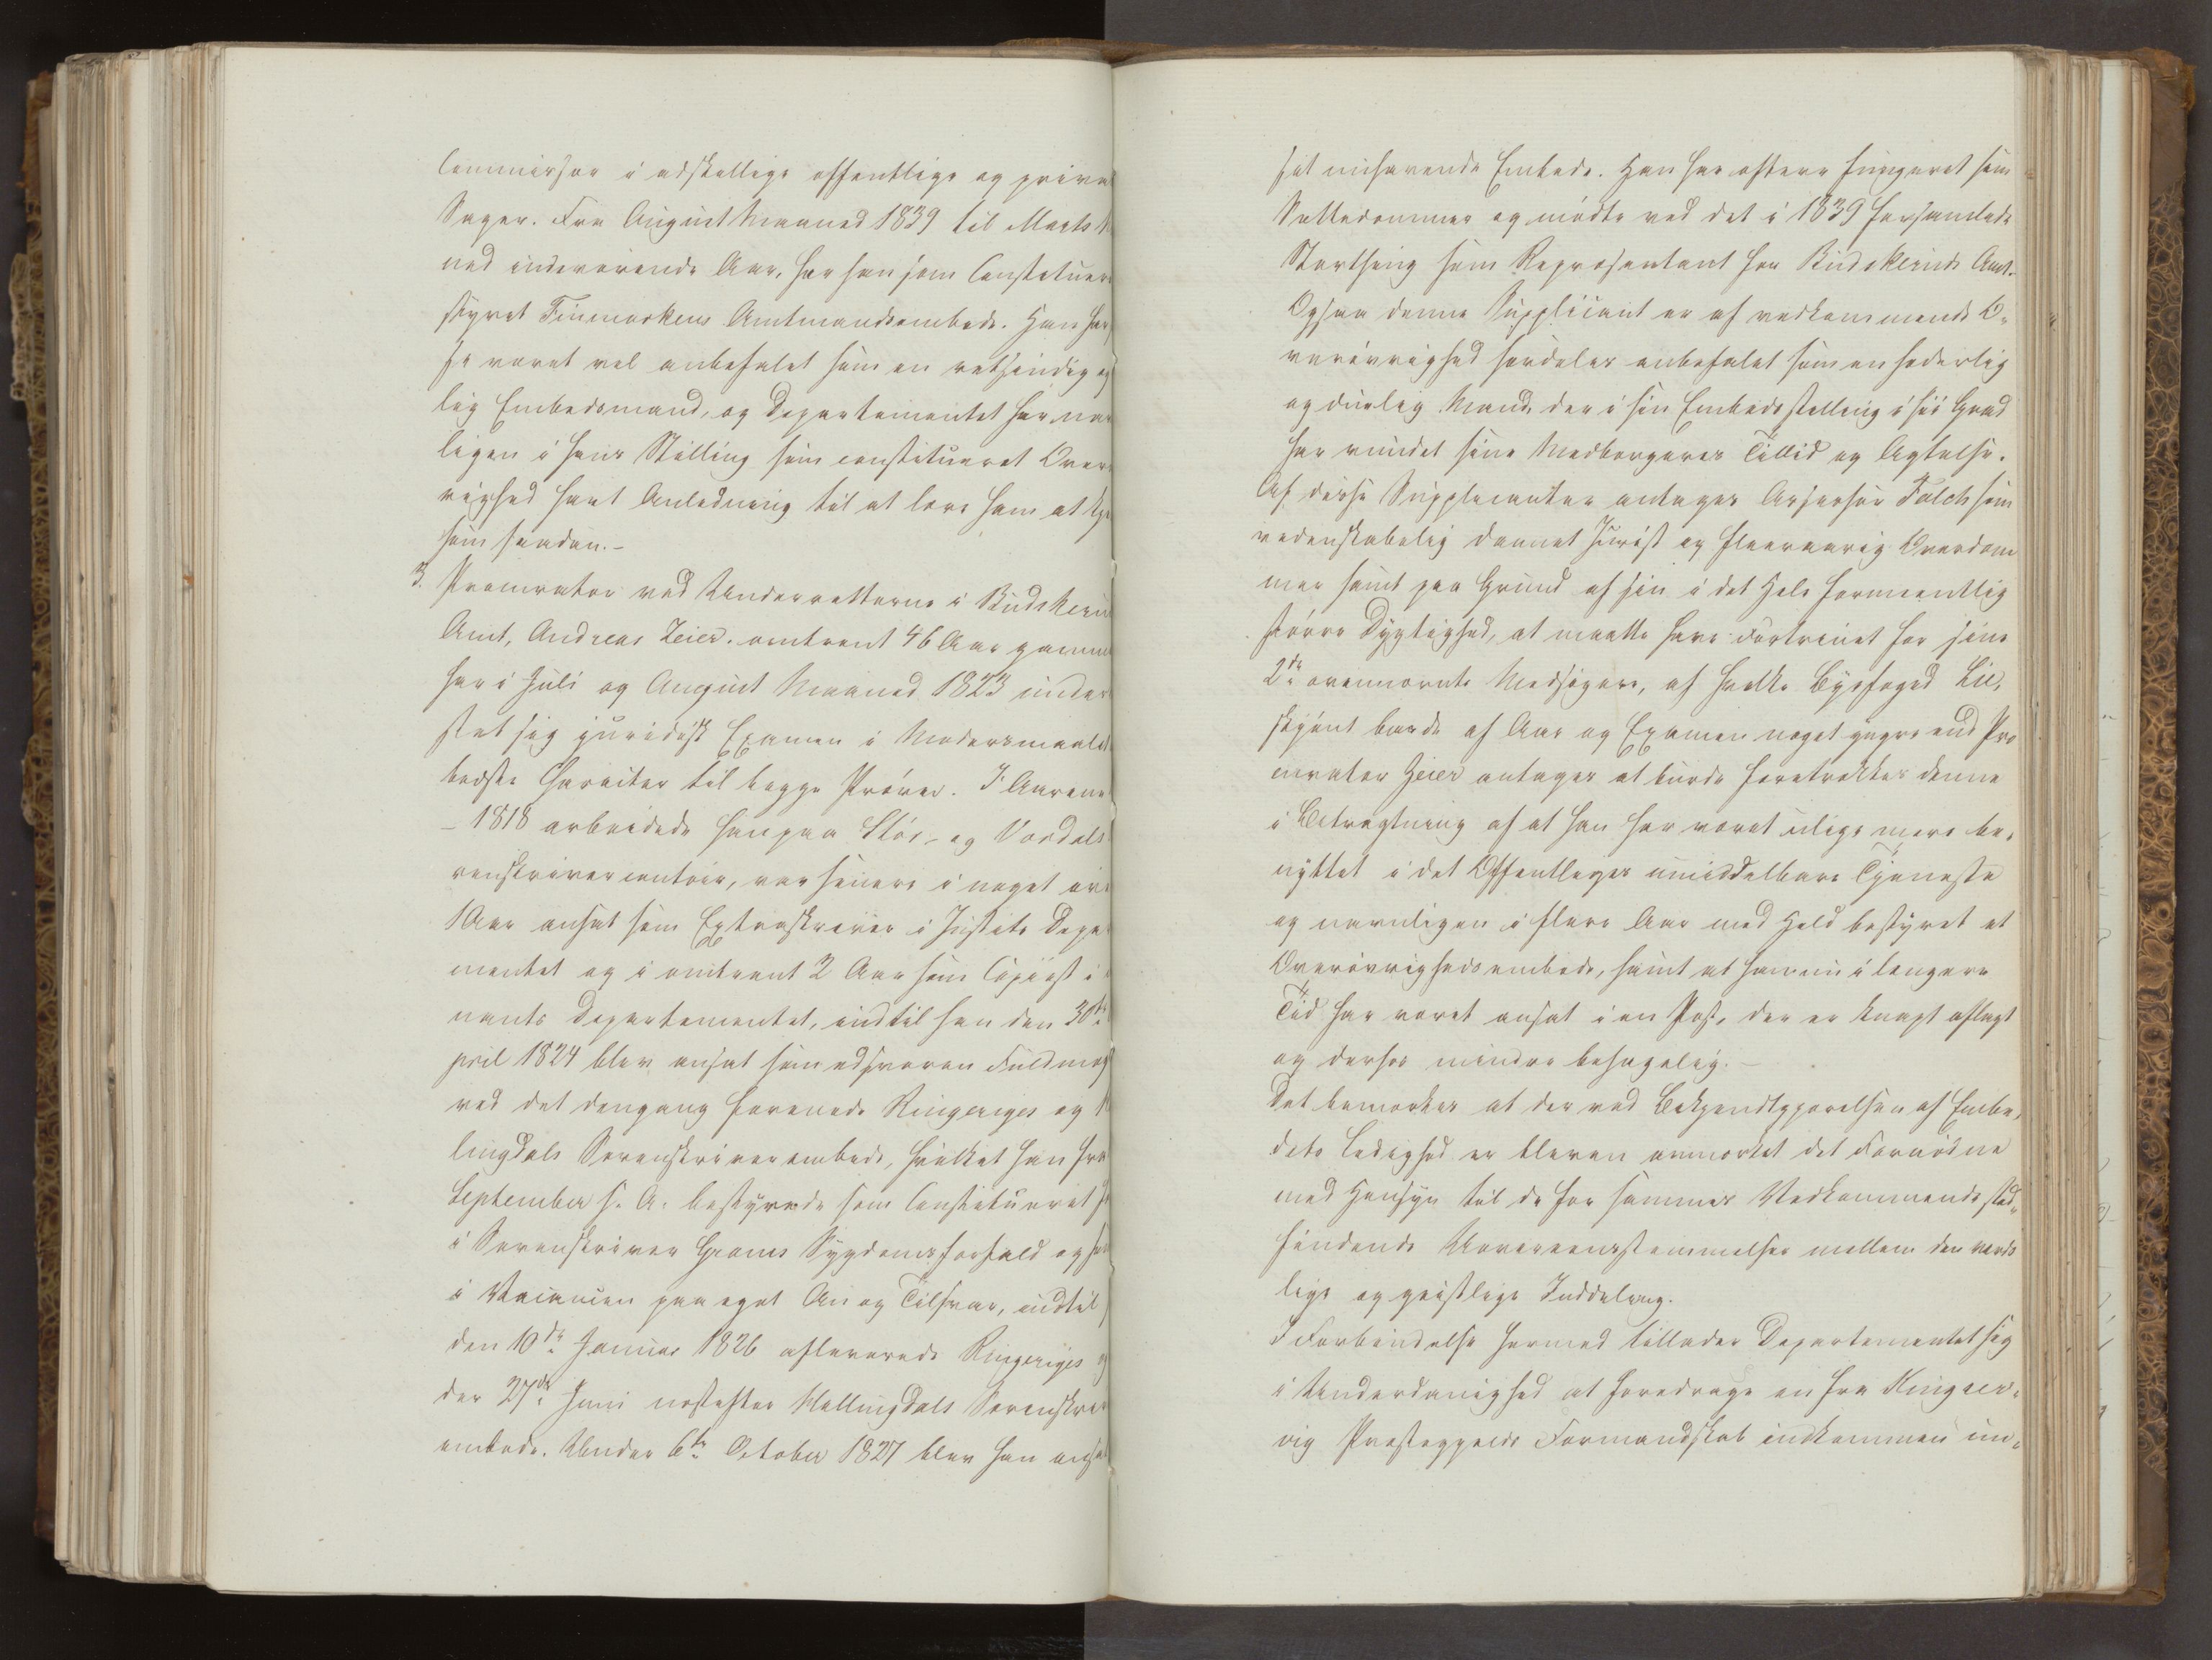 Commissær i adskellige offentlige og priva
Sager. Fra August Maaned 1839 til Marts
ned indeværende Aar, har han som Constituer
styret Finmarkens Amtmandsembede. Han har
været vel anbefalet som en retsindig og
lig Embedsmand, og Departementet har nav
ligen i hans Stilling som constitueret Over
righed havt Anledning til at lære ham at kj
som saadan.-
3. Procurator ved Underretterne i Buskeru
Amt, Andreas Zeier. omtrent 46 Aar gamm
har i Juli og August Maaned 1823 under
stet sig juridisk Examen i Modersmaalet
bedste Character til begge Prøver. I Aarene
- 1818 arbeidede han paa Stør- og Værdals
renskrivercontoir, var senere i noget ov
1 Aar ansat som Extraskriver i Justits Depa
mentet og i omtrent 2 Aar som Copiist i
nants Departementet, indtil han den 30te
pril 1824 blev ansat som edsvoren Fuldmæg
ved det dengang forenede Ringeriges og
lingdals Sorenskriverembede, hvilket han fra
September s. A. bestyrede som Constitueret
i Sorenskriver Grams Sygdomsforfald og
i Vacancen paa eget An og Tilsvar, indtil
den 10de Januar 1826 afleverede Ringeriges
der 27de Juni næstefter Hallingdals Sorenskri
embede. Under 6te October 1827 blev han ansa
sit nuhavende Embede. Han har oftere fungeret som
Sættedommer og mødte ved det i 1839 forsamlede
Storthing som Repræsentant fra Buskeruds Amt.
Ogsaa denne Supplicant er af vedkommende O-
verøvrighed særdeles anbefalet som en hæderlig
og duelig Mand, der i sin Embedsstilling i høi Grad
har vundet sine Medborgeres Tillid og Agtelse.
Af disse Supplicanter antages Assessor Falch som
videnskabelig dannet Jurist og fleeraarig Overdom
mer samt paa Grund af sin i det Hele formeentlig
større Dygtighed, at maatte have Fortrinet for sine
2de ovennævnte Medsøgere, af hvilke Byefoged Lie,
skjønt baade af Aar og Examen noget yngre end Pro
curator Zeier antages at burde foretrækkes denne
i Betragtning af at han har været ulige mere be-
nyttet i det Offentliges umiddelbare Tjeneste
og navnligen i flere Aar med Held bestyret et
Overøvrighedsembede, samt at han nu i længere
Tid har været ansat i en Post, der er knapt aflagt
og derhos mindre behagelig.-
Det bemærkes at der ved Bekjendtgjørelsen af Embe-
dets Ledighed er bleven anmærket det Fornødne
med Hensyn til de for sammes Vedkommende sted-
findende Uovereensstemmelser mellem den verds
lige og geistlige Inddeling.
I Forbindelse hermed tillader Departementet sig
i Underdanighed at foredrage en fra Kingser-
vig Præstegjelds Formandskab indkommen un-